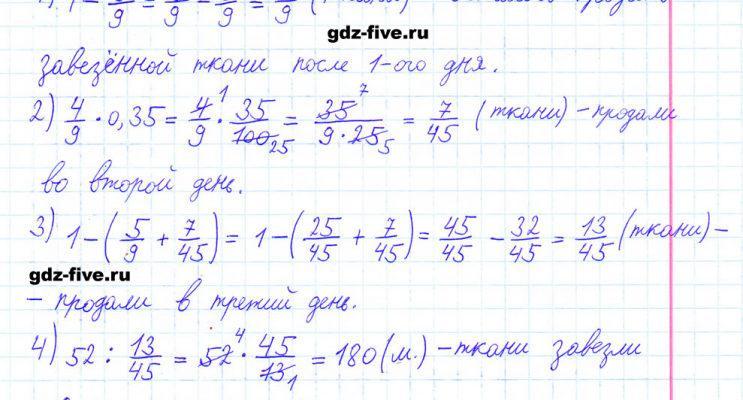 gdz-five.ru
завезённой ткани после 1-ого дня.
2) 4/9 · 0,35 = 4/9 · 35/100 = 35/(9 · 25) = 7/45 (ткани) - продали
во второй день.
3) 1 - (5/9 + 7/45) = 1 - (25/45 + 7/45) = 45/45 - 32/45 = 13/45 (ткани) -
gdz-five.ru
- продали в третий день.
4) 52 : 13/45 = 52 · 45/13 = 180 (м.) - ткани завезли